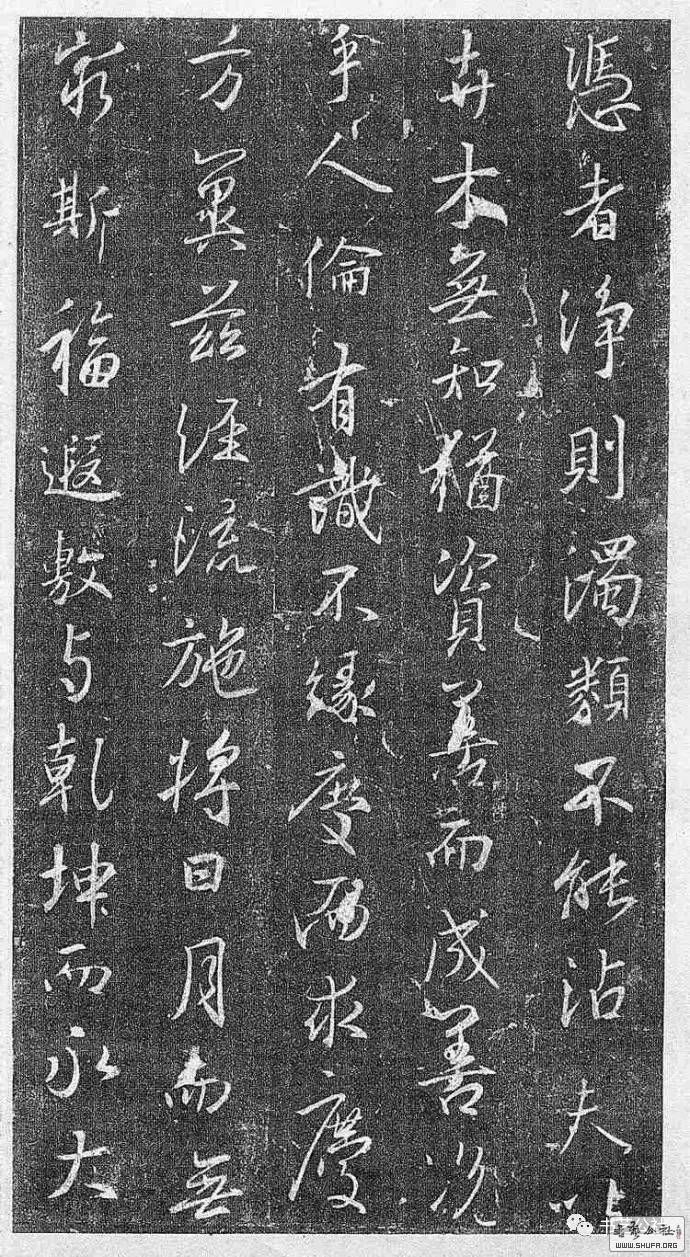 憑者浄則濁類不能沾夫以
卉木無知猶資善而成善況
乎人倫有識不緣慶而求慶
方冀茲經流施將日月而無
窮斯福遐敷与乾坤而永大
WWW.SHUFA.ORG